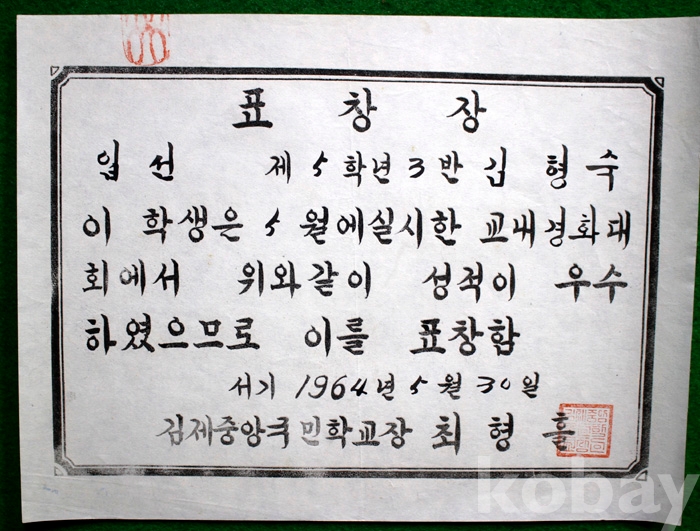 표창장
입선 제5학년3반 김형숙
이 학생은 5월에실시한 교내경화대
회에서 위와같이 성적이 우수
하였으므로 이를 표창함
서기 1964년 5월 30일
김제중앙국민학교장 최형훌
kobay